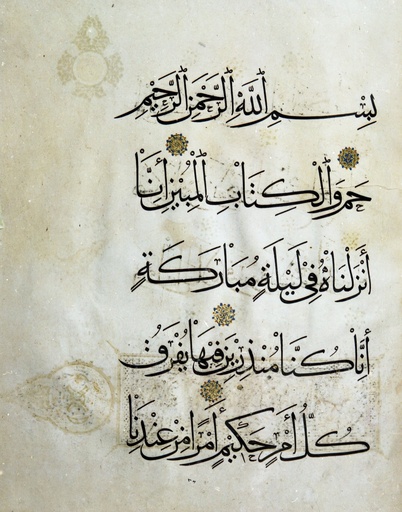 بِسْمِ ٱللَّهِ ٱلرَّحْمَنِ ٱلرَّحِيمِ
حَم وَٱلْكِتَابِ ٱلْمُبِينِ أَنَّا
أَنْزَلْنَاهُ فِي لَيْلَةٍ مُبَارَكَةٍ
أَنَّا كُنَّا مُنْذِرِينَ فِيهَا يُفْرَقُ
كُلُّ أَمْرٍ حَكِيمٍ أَمْرًا مِنْ عِنْدِنَا